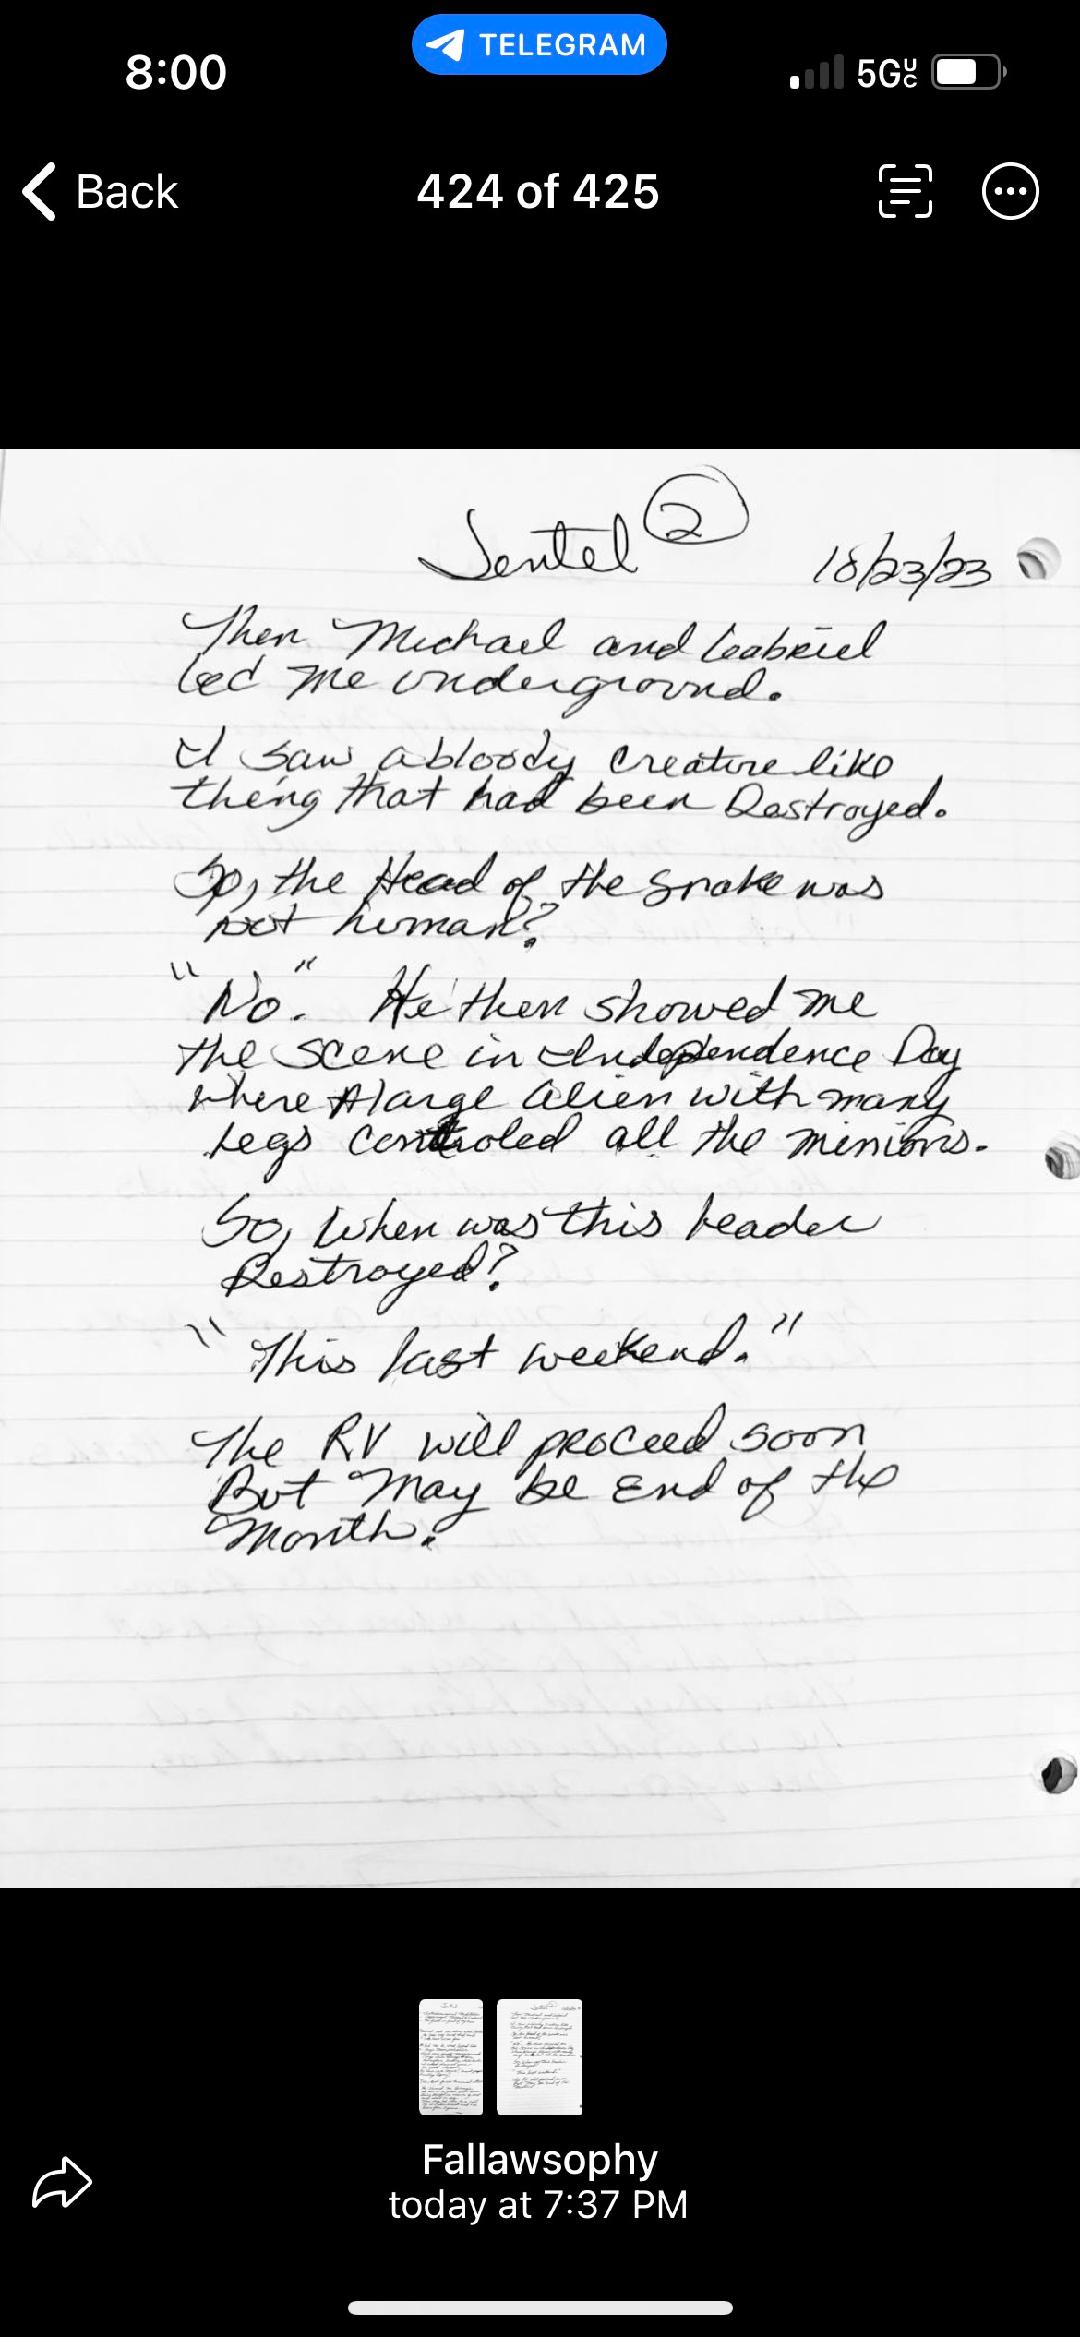 8:00
TELEGRAM
5G UC
Back
424 of 425
Jentel 2
10/23/23
Then Michael and Gabriel
led me underground.
I saw a bloody creature like
thing that had been Destroyed.
So, the Head of the snake was
not human?
"No." He then showed me
the scene in Independence Day
where A large alien with many
Legs controled all the minions.
So, when was this leader
Destroyed?
"This last weekend."
The RV will proceed soon
But May be End of the
Month.
Fallawsophy
today at 7:37 PM